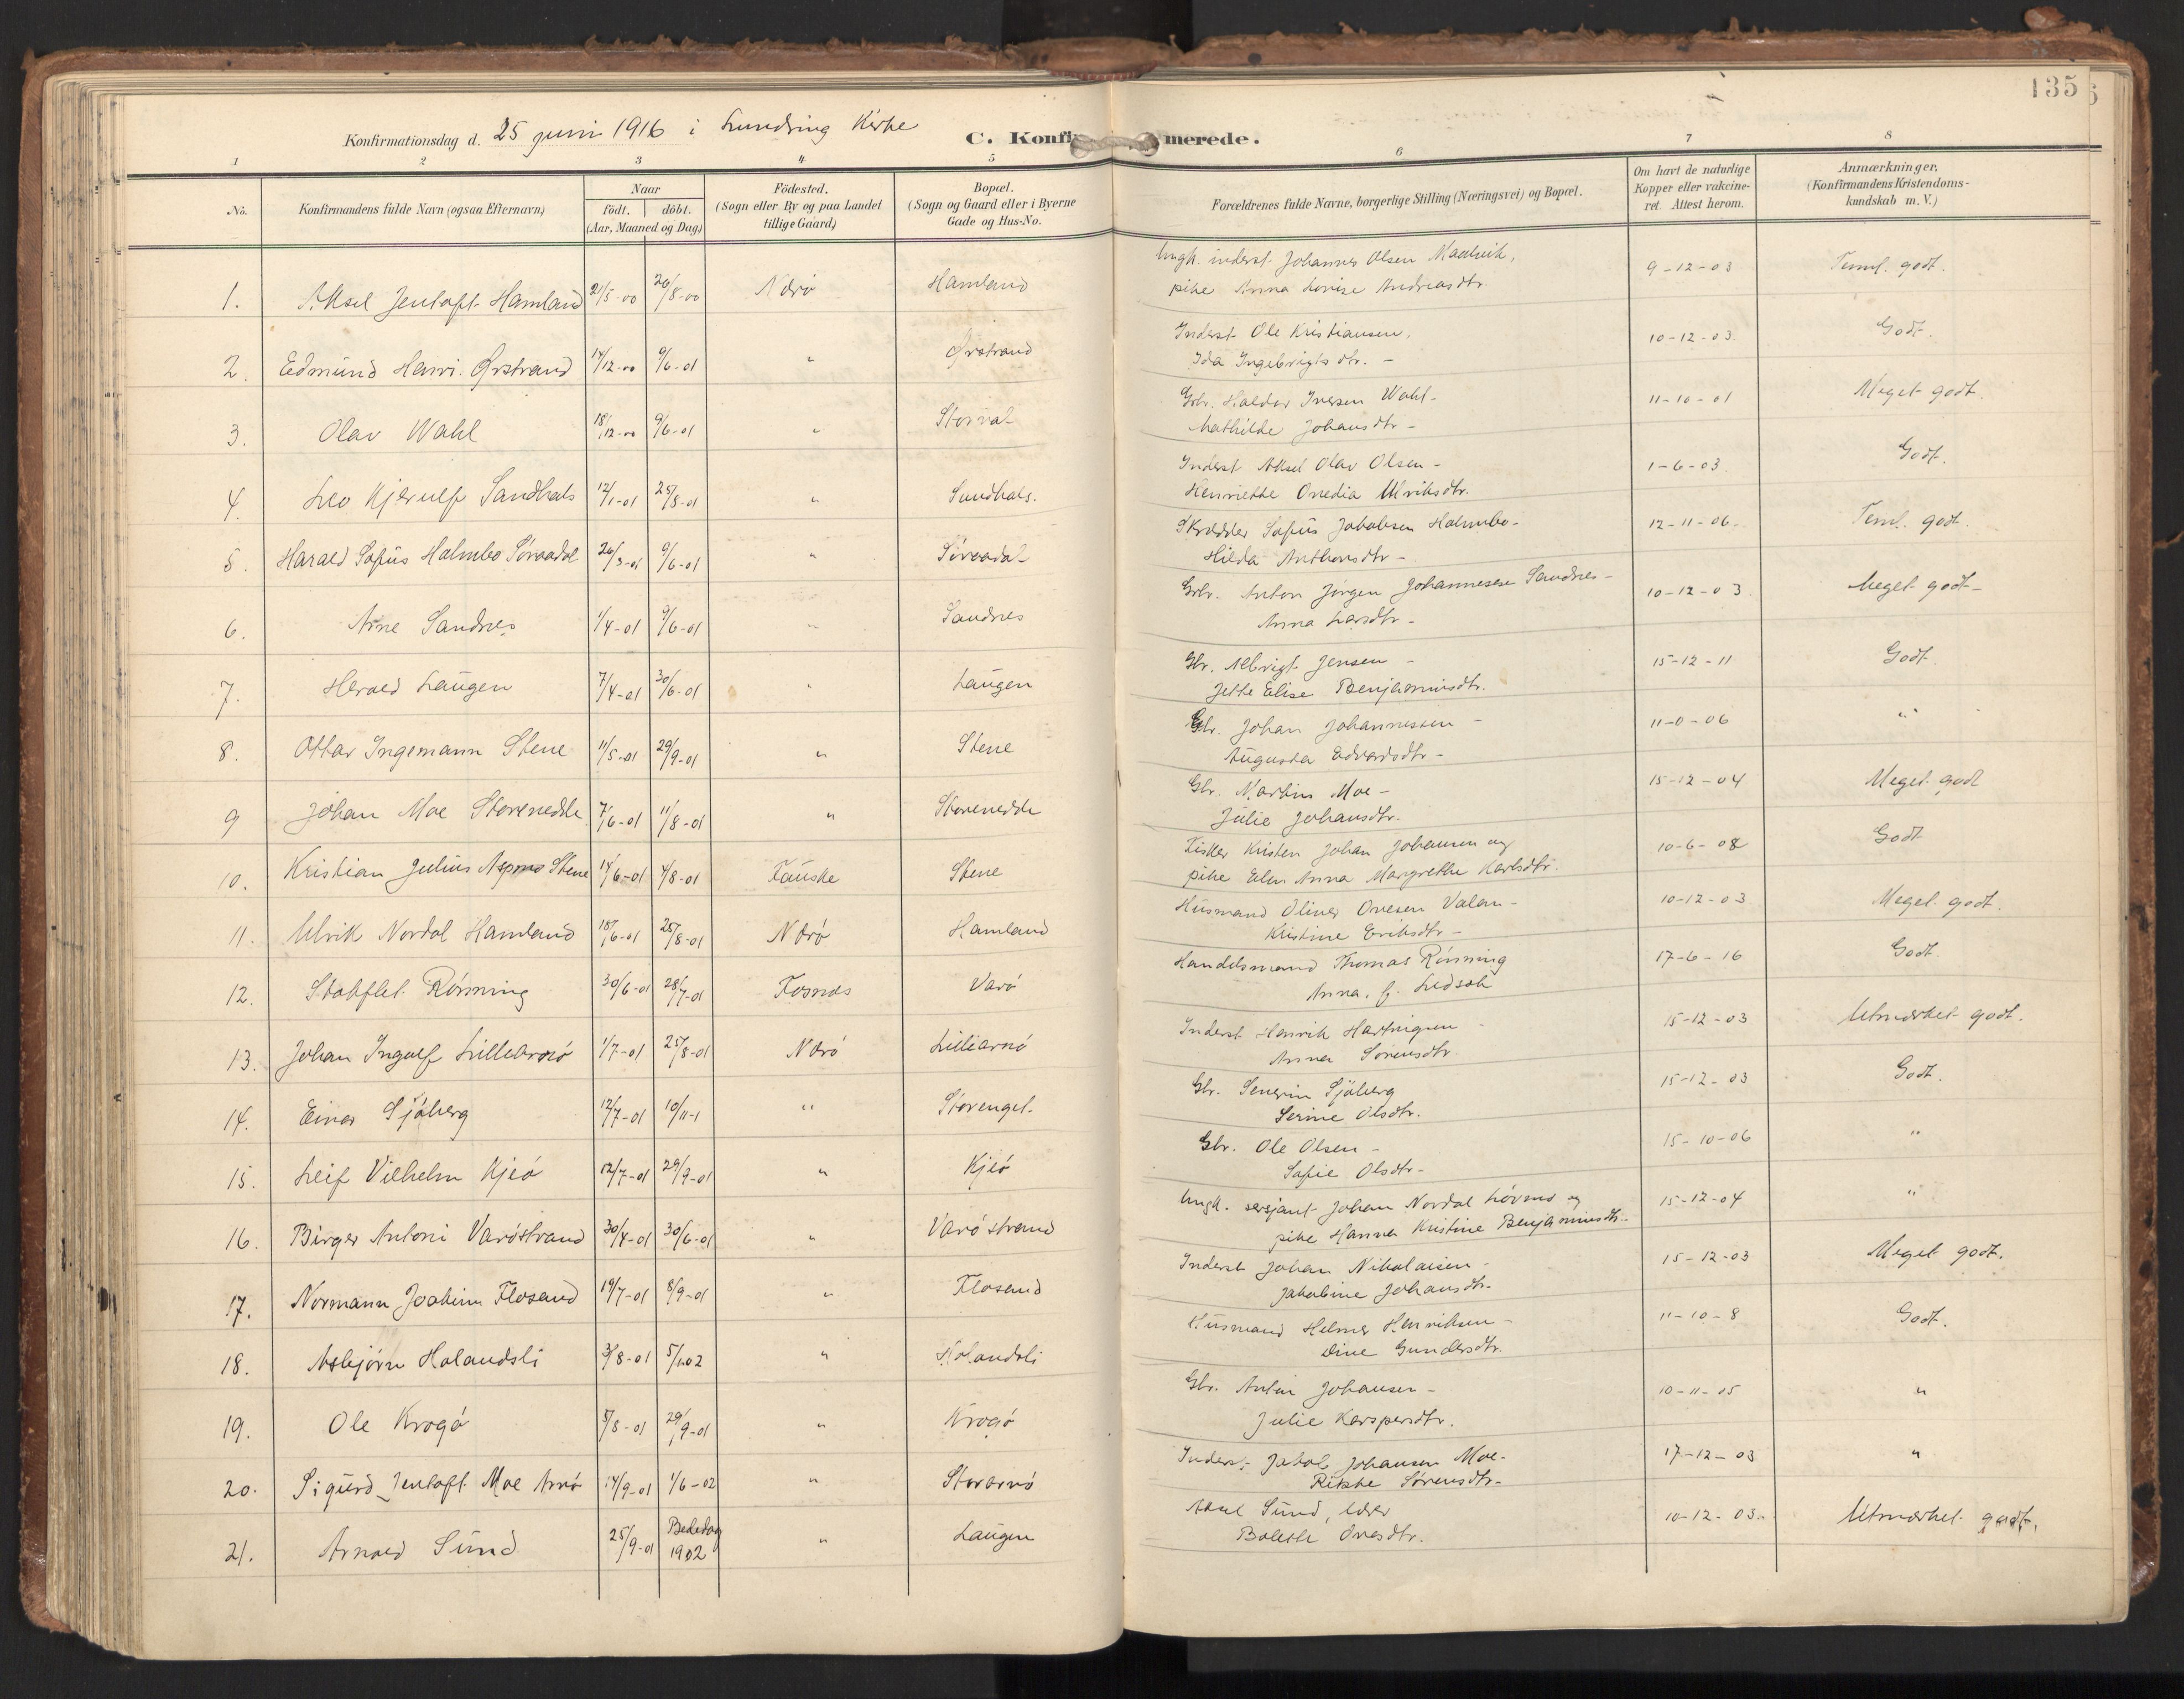 135
Konfirmationsdag d. 25 juni 1916 i Lundring Kirke
C. Konfirmerede.
1 2 3 4 5 6 7 8
No.
Konfirmandens fulde Navn (ogsaa Efternavn)
Naar
födt. döbt.
(Aar, Maaned og Dag)
Födested.
(Sogn eller By og paa Landet
tillige Gaard)
Bopæl.
(Sogn og Gaard eller i Byerne
Gade og Hus-No.
Forældrenes fulde Navne, borgerlige Stilling (Næringsvei) og Bopæl.
Om havt de naturlige
Kopper eller vakcine-
ret. Attest herom.
Anmærkninger,
(Konfirmandens Kristendoms-
kundskab m. V.)
1. Aksel Jentoft Hamland 21/5-00 26/8-00 Nærö Hamland Ungk. inderst Johannes Olsen
pike Anna Lovise Andreasdtr. 9-12-03 Teml. godt.
2. Edmund Henri Ørstrand 14/12-00 9/6-01 " Ørstrand Inderst Ole Kristiansen,
Ida Ingebrigtsdtr. - 10-12-03. Godt.
3. Olav Wahl 18/12-00 9/6-01 " Storval Gbr. Haldor Iversen Wahl-
Mathilde Johansdtr - 11-10-01 Meget godt.
4. Leo Kjerulf Sandhals 12/1-01 25/8-01 " Sandhals. Inderst Aksel Olav Olsen -
Henriette Ovedia Ulriksdtr. 1-6-03. Godt.
5. Harald Sofus Holmbo Søraadal 26/3-01 9/6-01 " Søraadal Skrædder Sofus Jakobsen Holmbo-
Hilda Anthonsdtr - 12-11-06. Teml. godt.
6. Arne Sandnes 1/4-01 9/6-01 " Sandnes Gbr. Anton Jörgen Johannesen Sandnes-
Anna Larsdtr - 10-12-03. Meget godt-
7. Herald Laugen 7/4-01 30/6-01 " Laugen Gbr. Albrigt Jensen -
Jette Elise Benjaminsdtr. 15-12-11 Godt.
8. Ottar Ingemann Stene 11/5-01 29/9-01 " Stene Gbr. Johan Johannessen -
Augusta Edvardsdtr - 11-0-06 "
9 Johan Moe Storenedde 7/6-01 11/8-01 " Storenedde Gbr. Martin Moe -
Julie Johansdtr. 15-12-04 Meget godt
10. Kristian Julius Stene 14/6-01 4/8-01 Fauske Stene Fisker Kristen Johan Johansen og
pike Elen Anna Margrethe Karlsdtr. 10-6-08 Godt
11. Ulrik Nordal Hamland 18/6-01 25/8-01 Nærö Hamland Husmand Oliver Ovesen Valan -
Kristine Eriksdtr - 10-12-03 Meget godt.
12. Stokflet Rönning 30/6-01 28/7-01 Fosnæs Varö Handelsmand Thomas Rönning
Anna, f. 17-6-16 Godt.
13. Johan Ingolf Lillearnö 1/7-01 25/8-01 Nærö Lillearnö Inderst Henrik Hartvigsen -
Anna Sörensdtr. 15-12-03 Utmærket godt.
14. Einar Sjöberg 12/7-01 10/11-1 " Storenget. Gbr. Severin Sjöberg
Serine Olsdtr. 15-12-03 Godt.
15. Leif Vilhelm Kjeö 12/7-01 29/9-01 " Kjeö Gbr. Ole Olsen -
Sofie Olsdtr - 15-10-06 "
16. Birger Antoni Varöstrand 30/4-01 30/6-01 " Varöstrand Ungk. sersjant Johan Nordal Lövmo og
pike Hanna Kristine Benjaminsdtr. 15-12-04 "
17. Normann Joakim Flosand 19/7-01 8/9-01 " Flosand Inderst Johan Nikolaisen -
Jakobine Johansdtr. 15-12-03 Meget godt.
18. Asbjörn Holandsli 3/8-01 5/1-02 " Holandsli Husmand Helmer Henriksen -
Dine Gundersdtr. 11-10-8 Godt.
19. Ole Krogö 5/8-01 29/9-01 " Krogö Gbr. Antin Johansen -
Julie Kaspersdtr. 10-11-05 "
20. Sigurd Jentoft Moe Arnö 14/9-01 1/6-02 " Storarnö Inderst Jakob Johansen Moe-
Rikke Sörensdtr- 17-12-03 "
21. Arnold Sund 25/9-01 Bededag 1902 " Laugen Aksel Sund, lærer
Bolette Ovesdtr. 10-12-03. Utmærket godt.